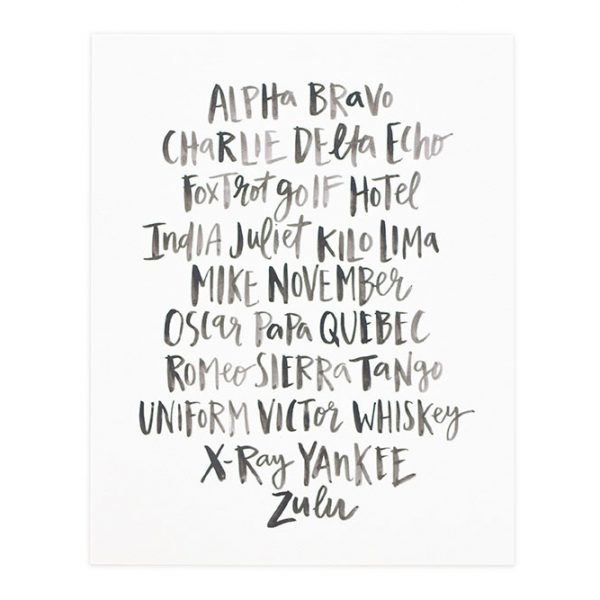 ALPHa BRaVO
CHaRLIE DElta Echo
FoxTrot golf HoTEL
IndIA Juliet KILO LIMA
MIKE NOVEMBer
OScar PaPA QUEBEC
ROMeo SIERRA TaNgo
UNIFORM VICTor WHISKey
X-Ray YANKEE
Zulu